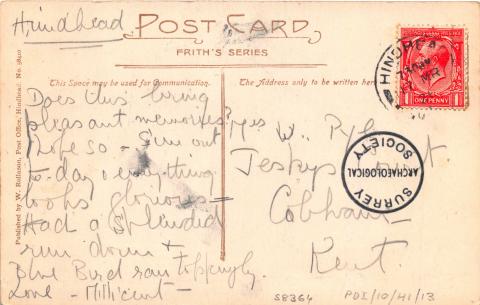 Hindhead
POST CARD
FRITH'S SERIES
This Space may be used for Communication.
The Address only to be written here
Does this bring
pleasant memories?
I hope so - Sun out
to-day & everything
looks glorious -
Had a splendid
run down &
Blue Bird ran toppingly.
Love - Millicent -
Mrs W.
Jeskyns
Cobham
Kent.
HINDHEAD
ONE PENNY
SURREY
ARCHAEOLOGICAL
SOCIETY
Published by W. Rollason, Post Office, Hindhead.
S8364
PDI/10/41/13